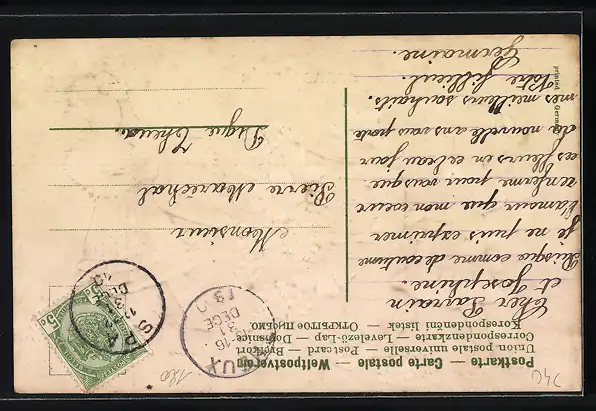 Postkarte — Carte postale — Weltpostverein
Union postale universelle — Postcard — Brefkort
Correspondenzkarte — Levelező-Lap — Dopisnice
Korespondenční listek — ОТКРЫТОЕ ПИСЬМО
Cher Parrain
et Josephine.
Puisque comme de coutume
je ne puis exprimer
l'amour que mon coeur
renferme pour vous que
ces fleurs en ce beau jour
du nouvelle ans vous porte
mes meilleurs souhaits.
Votre filleul.
Germaine.
Monsieur
Pierre Maréchal
Digue Theux.
5
16
3
DECE
19
UX
13
DEC
S
A
1300